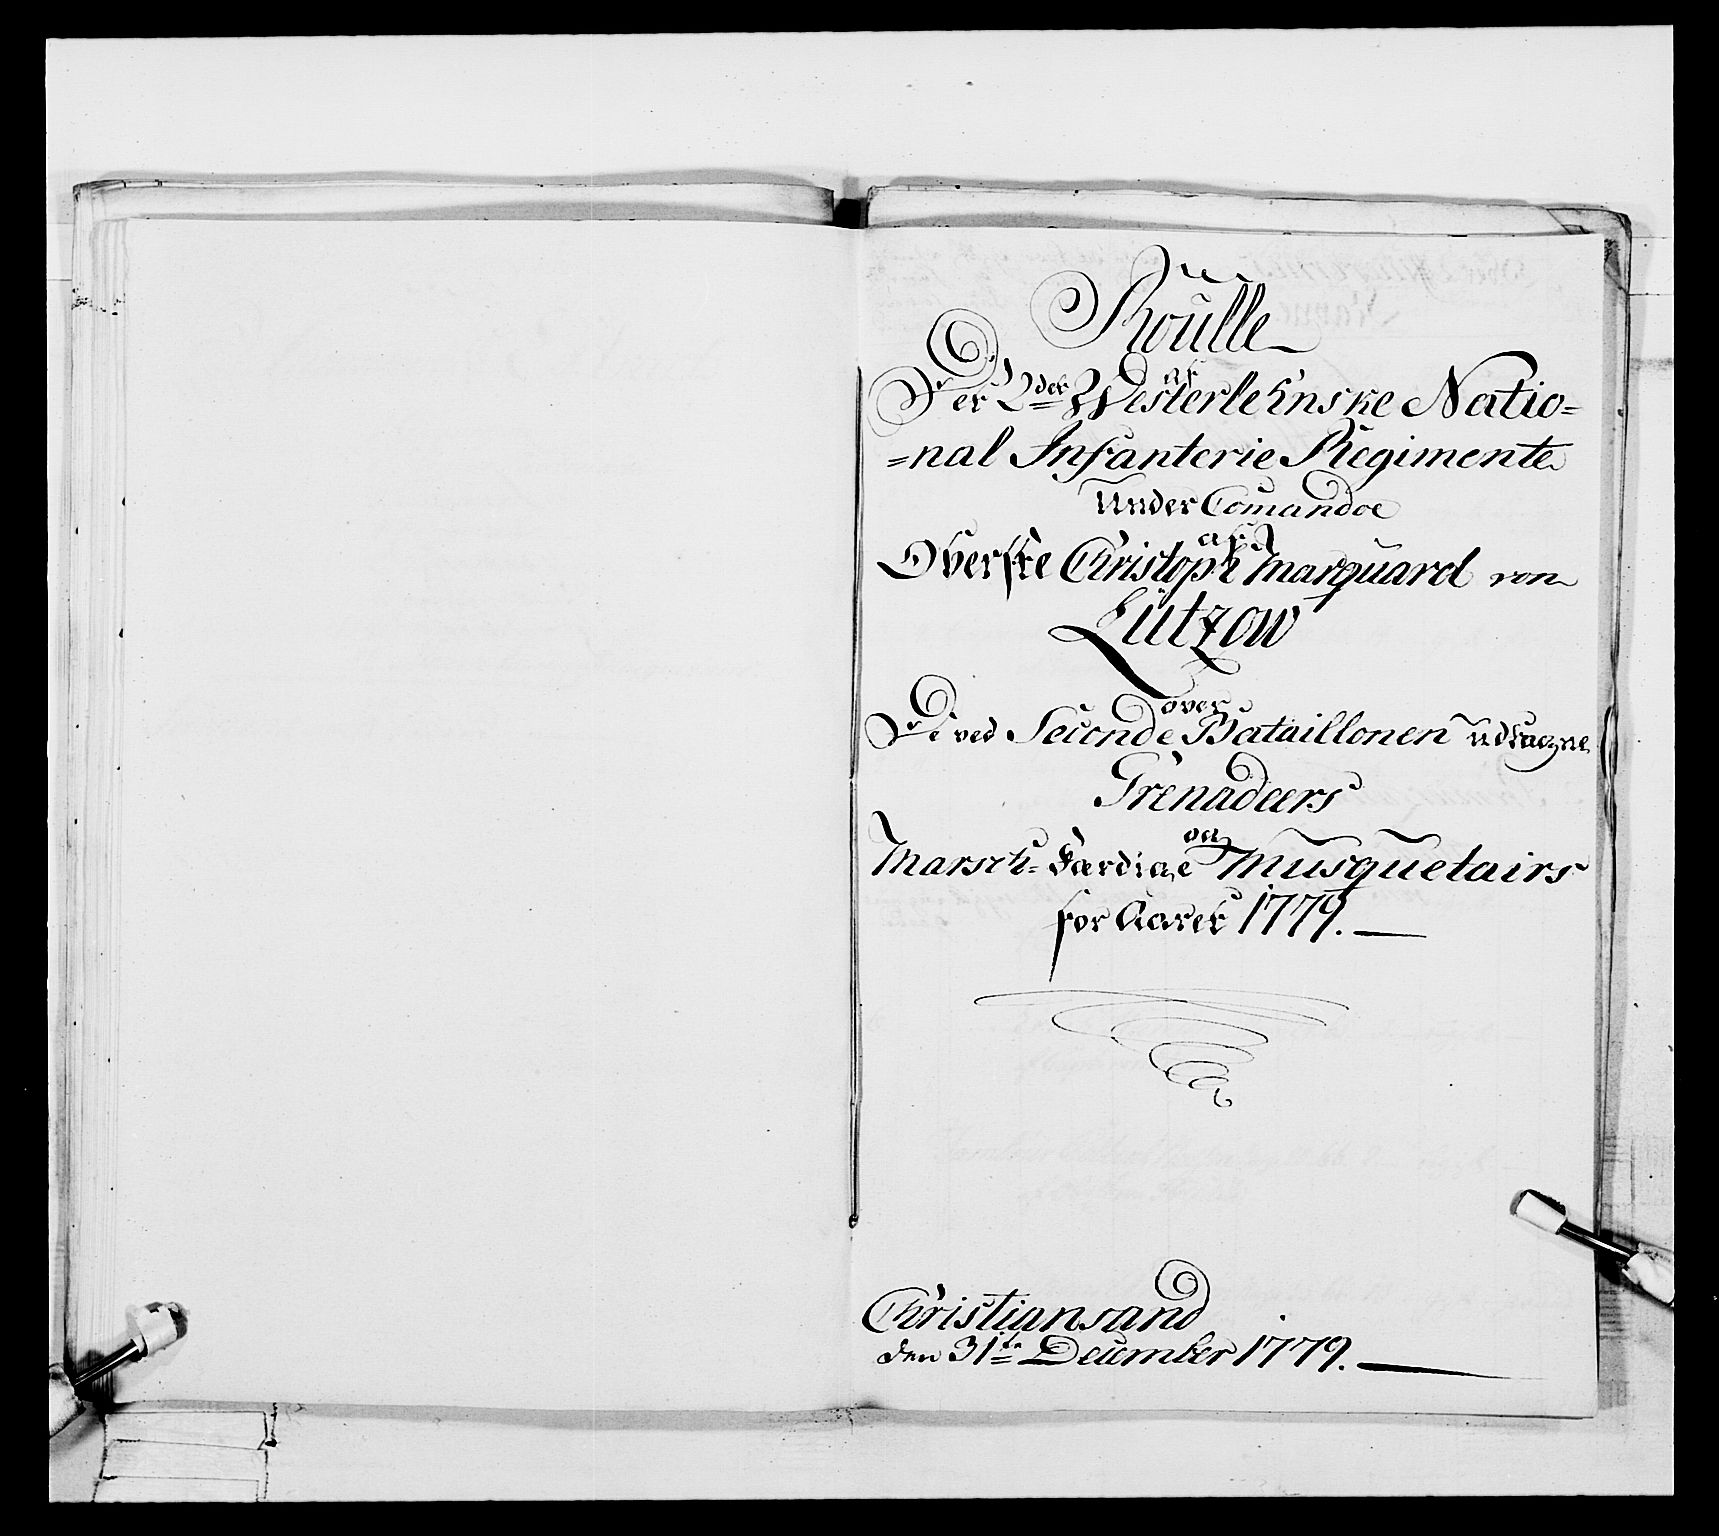 Roulle
af
Det 2det Westerlehnske Natio=
=nal Infanterie Regimente
Under Comandoe
af
Oberste Christoph Marquard von
Lützow
over
De ved Seconde Bataillonen udtagne
Grenadeers
og
Marsch-Færdige Musquetairs
for Aaret 1779.
Christiansand
den 31te December 1779.